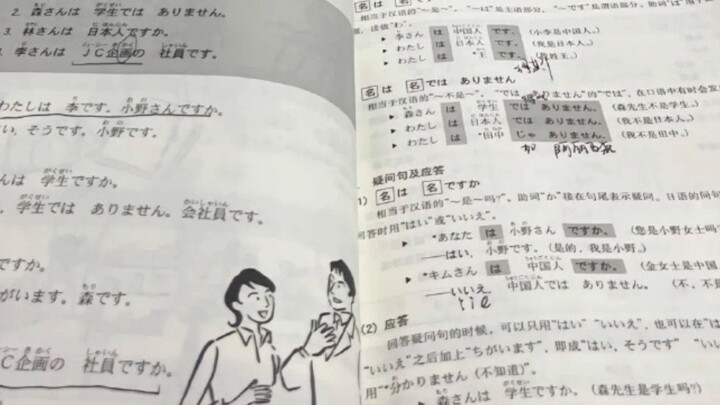 2. 森さんは 学生では ありません。
3. 林さんは 日本人ですか。
4. 李さんは JC企画の 社員です。
わたしは 李です。小野さんですか。
い，そうです。小野です。
んは 学生ですか。
，学生では ありません。会社員です。
ですか。
がいます。森です。
C企画の 社員ですか。
名は 名
相当于汉语的“～是～”。“～は”是主语部分，“～です”是谓语部分。助词“は”用
读做“わ”。
李さん は 中国人 です。（小李是中国人。）
わたし は 日本人 です。（我是日本人。）
わたし は 王 です。（我姓王。）
名は 名では ありません
相当于汉语的“～不是～”。“では ありません”的“では”，在口语中有时会发
森さん は 学生 では ありません。（森先生不是学生。）
わたし は 日本人 では ありません。（我不是日本人。）
わたし は 田中 じゃ ありません。（我不是田中。）
疑问句及应答
1) 名は 名ですか
相当于汉语的“～是～吗？”。助词“か”接在句尾表示疑问。日语的问句
回答时用“はい”或“いいえ”。
あなた は 小野さん ですか。（您是小野女士吗？
——はい，小野です。（是的，我是小野。）
キムさん は 中国人 ですか。（金女士是中国
——いいえ，中国人では ありません。（不，不是
iie
(2) 应答
回答疑问句的时候，可以只用“はい”“いいえ”，也可以在“は
“いいえ”之后加上“ちがいます”，即成“はい，そうです”“いい
用“分かりません（不知道）”。
森さんは 学生ですか。（森先生是学生吗？）